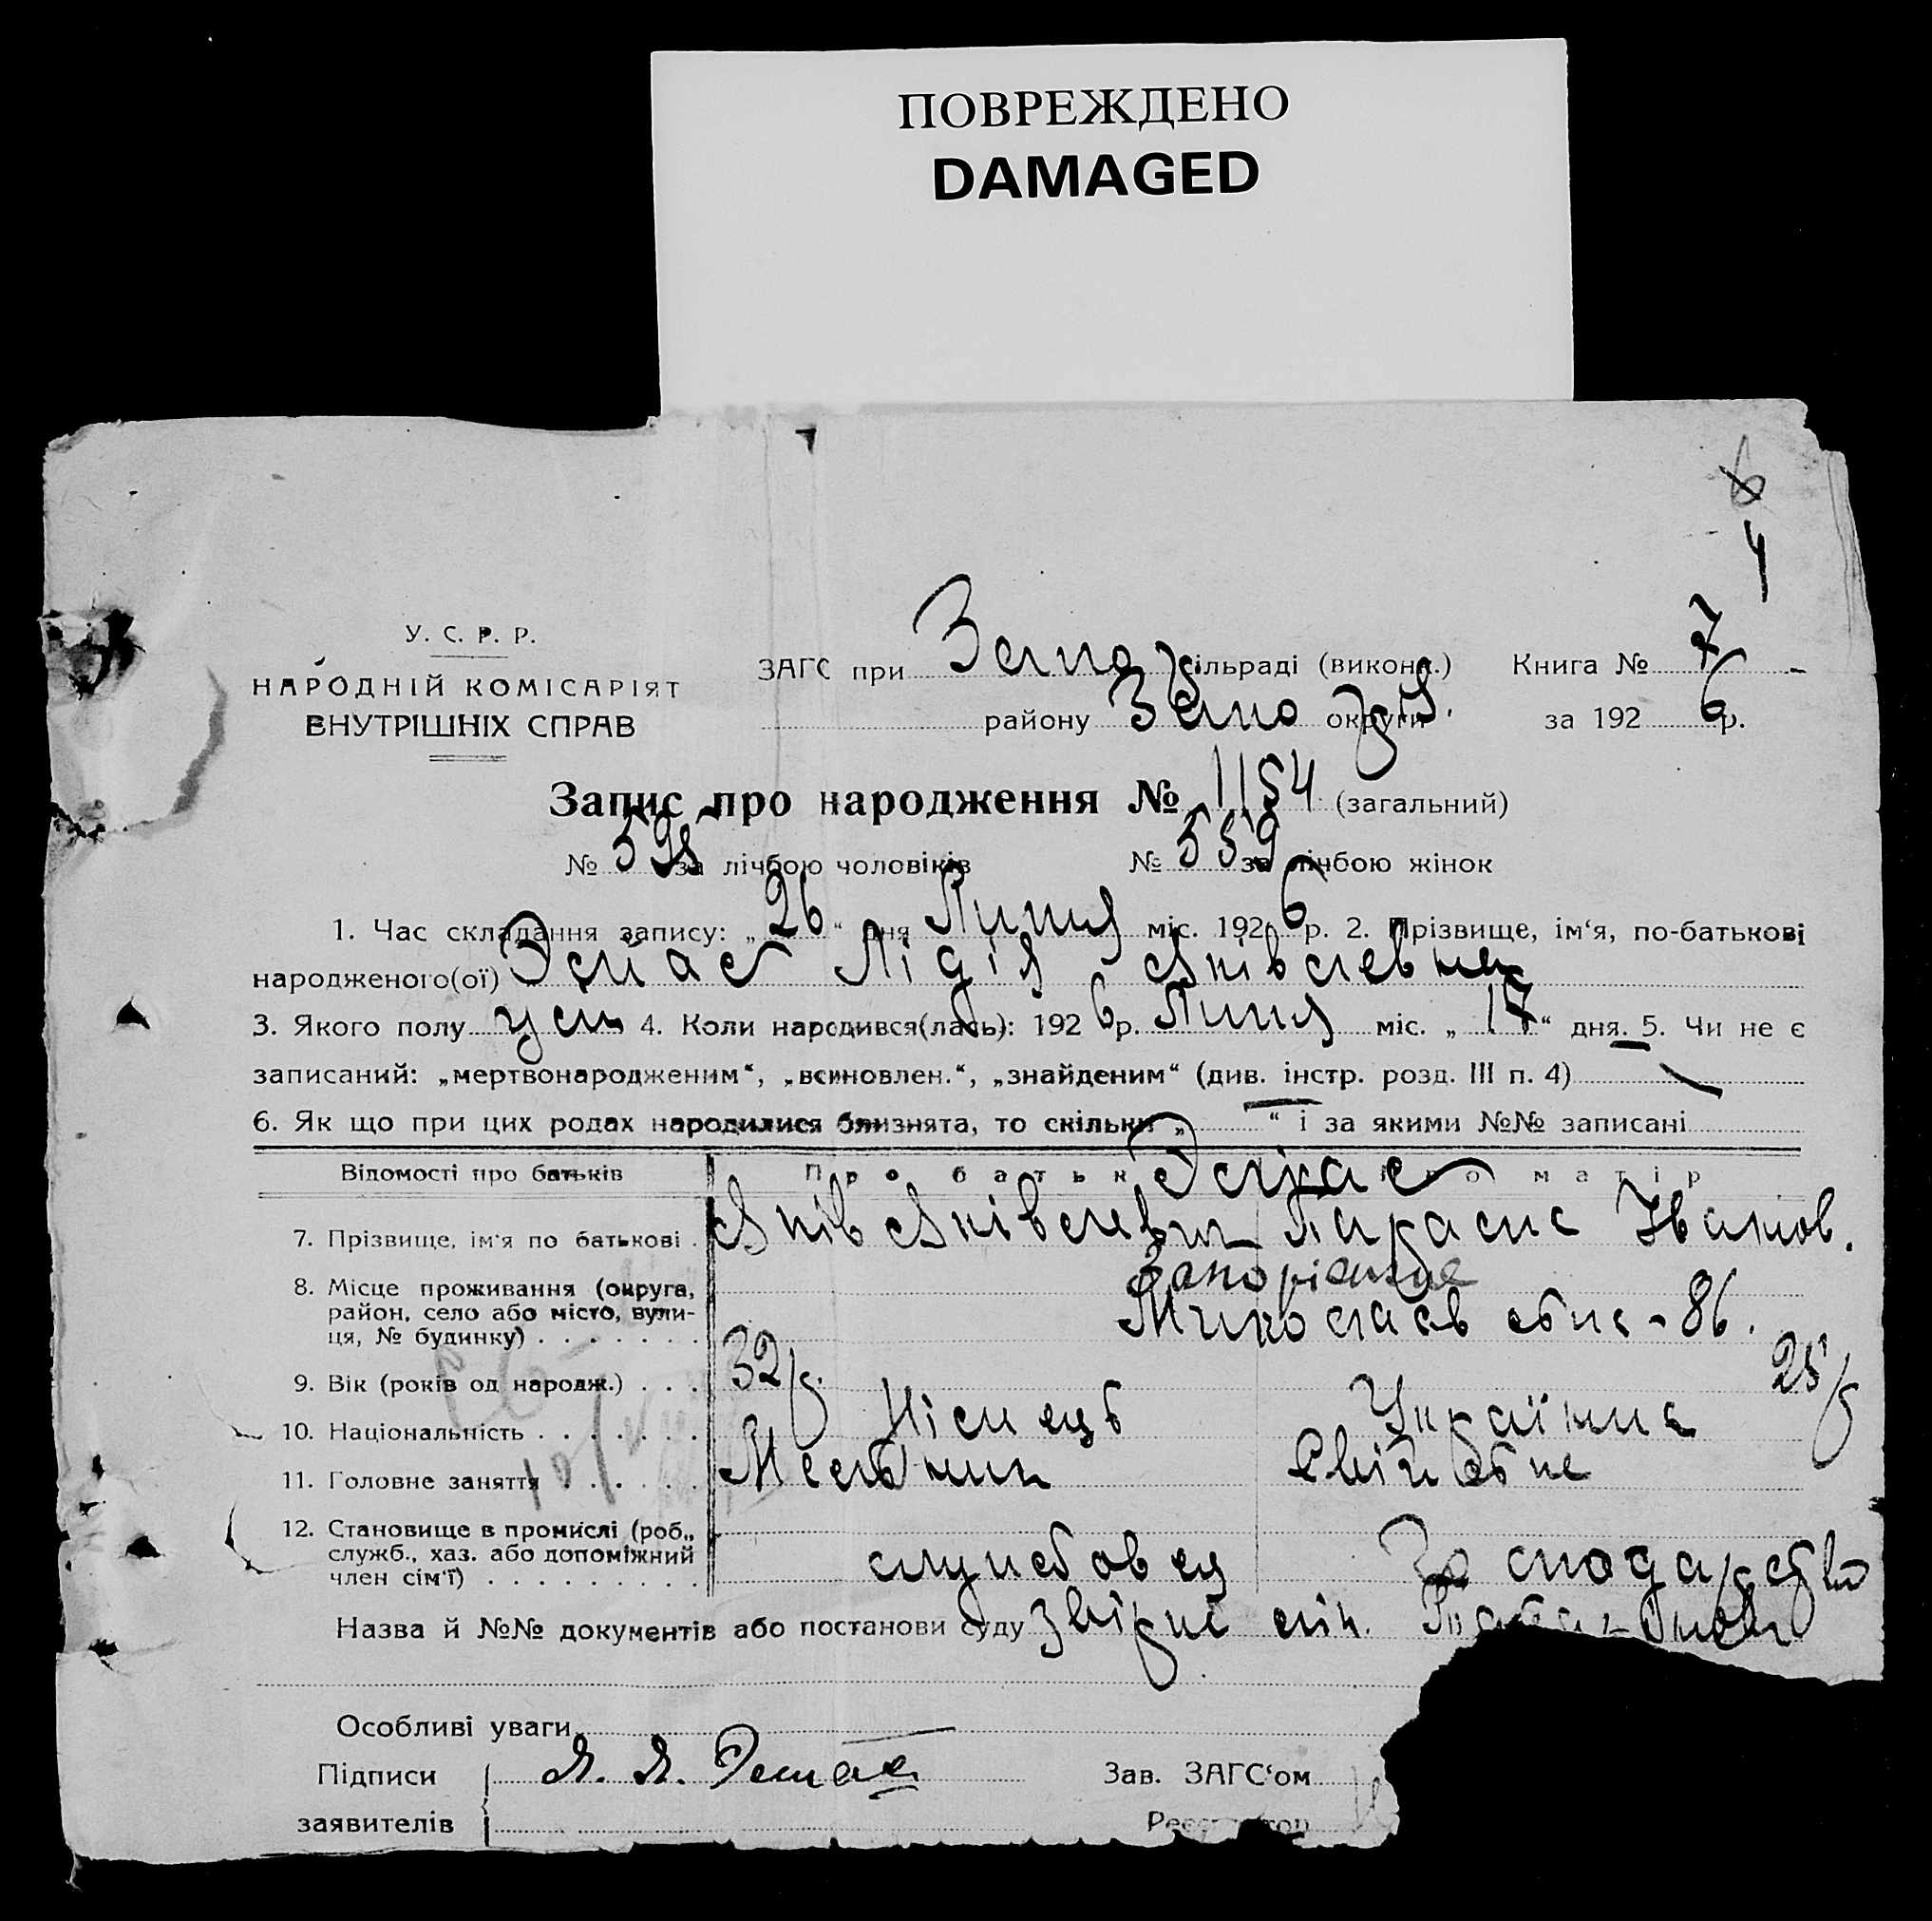 ПОВРЕЖДЕНО
DAMAGED
6
4
У. С. Р. Р.
НАРОДНІЙ КОМІСАРІЯТ
ВНУТРІШНІХ СПРАВ
ЗАГС при Запо сільраді (викона.) Книга № 7
району Запо округи за 192 6 р.
Запис про народження № 1154 (загальний)
№ 595 за лічбою чоловіків № 559 за лічбою жінок
1. Час складання запису: „ 26 “ дня Липня міс. 192 6 р. 2. Прізвище, ім‘я, по-батькові
народженого(ої) Лідія Яківлевна
3. Якого полу 4. Коли народився(лась): 192 6 р. Липня міс. „ 17 “ дня. 5. Чи не є
записаний: „мертвонародженим“, „всиновлен.“, „знайденим“ (див. інстр. розд. III п. 4)
6. Як що при цих родах народилися близнята, то скільки „ — “ і за якими №№ записані
Відомості про батьків Про батька Про матір
7. Прізвище, ім‘я по батькові . Яків Яківлевич Іванов.
8. Місце проживання (округа, Запоріжже
район, село або місто, вули- - 86.
ця, № будинку) . . . . . . .
9. Вік (років од народж.) . . . 32 р. 25 р
10. Національність . . . . . . . Німець Українка
11. Головне заняття . . . . . .
12. Становище в промислі (роб.,
служб., хаз. або допоміжний службовец Господарство
член сім‘ї) . . . . . . . . .
Назва й №№ документів або постанови суду
Особливі уваги —
Підписи Я. Я. Зав. ЗАГС‘ом
заявителів